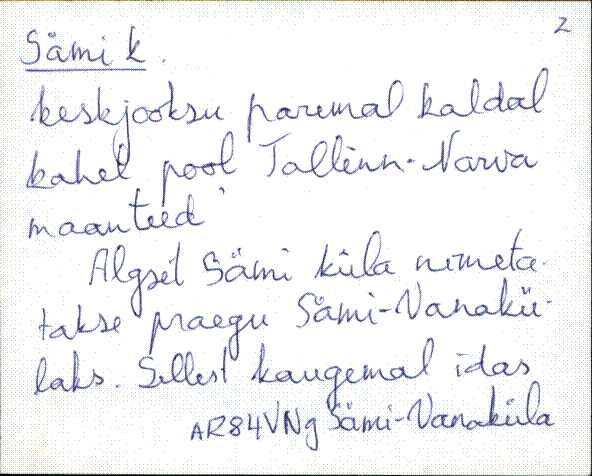 2
Sämi k.
keskjooksu paremal kaldal
kahel pool Tallinn-Narva
maanteed
Algset Sämi küla nimeta-
takse praegu Sämi-Vanakü-
laks. Sellest kaugemal idas
AR84VNg Sämi-Vanaküla